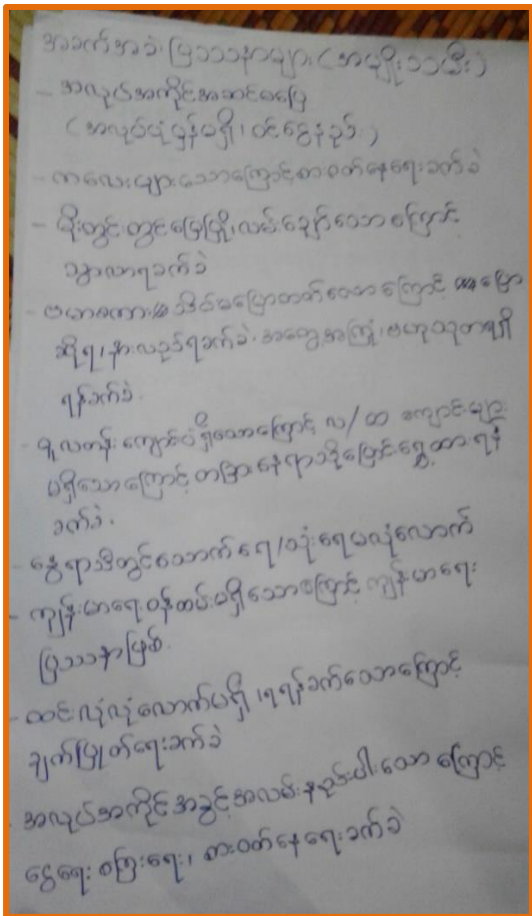 အခက်အခဲ ပြဿနာများ (အမျိုးသမီး)
- အလုပ်အကိုင်အဆင်မပြေ
(အလုပ်ပုံမှန်မရှိ၊ ဝင်ငွေနည်း)
- ကလေးများသောကြောင့် စားဝတ်နေရေးခက်ခဲ
- မိုးတွင်းတွင် မြေပြို၊ လမ်းချော်သောကြောင့်
သွားလာရခက်ခဲ
- ဗမာစကား မပြောတတ်သောကြောင့် ပြော
ဆိုရ၊ နားလည်ရခက်ခဲ၊ အတွေ့အကြုံ၊ ဗဟုသုတရရှိ
ရန်ခက်ခဲ.
- မူလတန်းကျောင်းပဲရှိသောကြောင့် လ/ထ ကျောင်းများ
မရှိသောကြောင့် တခြားနေရာသို့ပြောင်းရွှေ့ထားရန်
ခက်ခဲ.
- နွေရာသီတွင်သောက်ရေ/သုံးရေမလုံလောက်
- ကျန်းမာရေးဝန်ထမ်းမရှိသောကြောင့် ကျန်းမာရေး
ပြဿနာဖြစ်.
- ထင်းလုံလုံလောက်မရှိ၊ ရရန်ခက်သောကြောင့်
ချက်ပြုတ်ရေးခက်ခဲ
- အလုပ်အကိုင်အခွင့်အလမ်းနည်းပါးသောကြောင့်
ငွေရေးကြေးရေး၊ စားဝတ်နေရေးခက်ခဲ